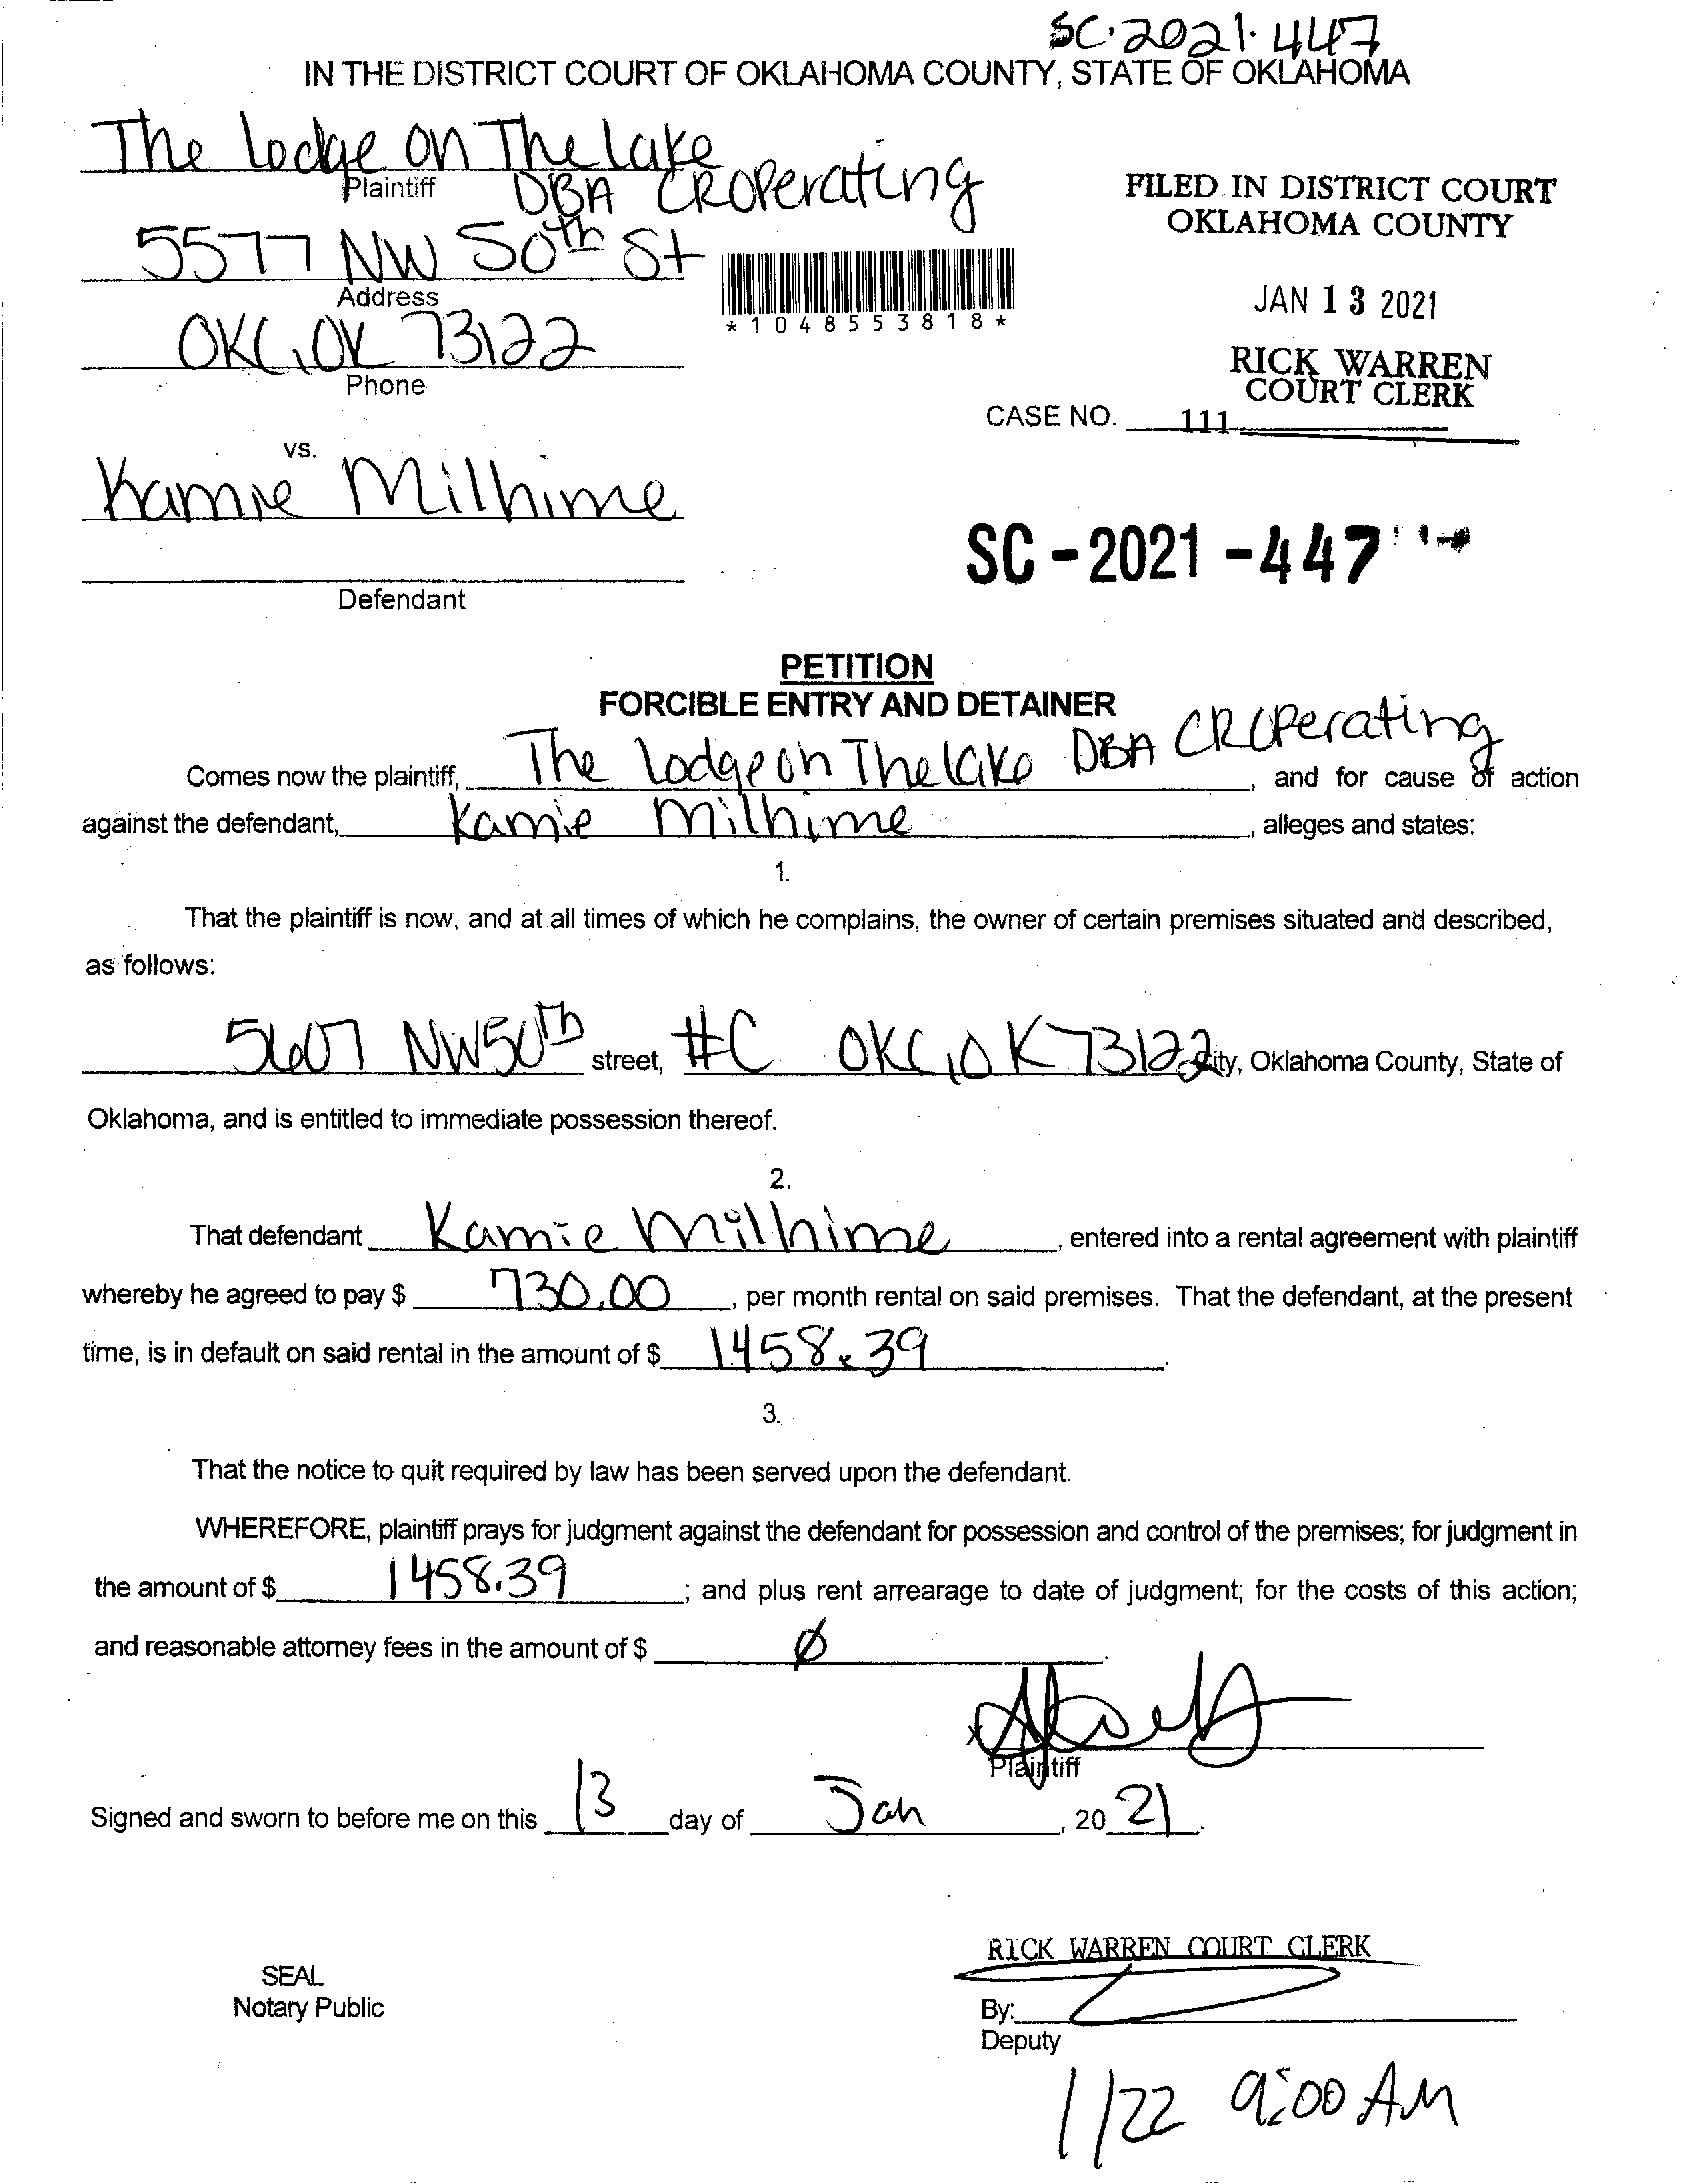 SC-2021-447
IN THE DISTRICT COURT OF OKLAHOMA COUNTY, STATE OF OKLAHOMA
The Lodge on The Lake
Plaintiff
DBA CROPerating
5577 NW 50th St
Address
OKC, OK 73122
Phone
*1048553818*
FILED IN DISTRICT COURT
OKLAHOMA COUNTY
JAN 13 2021
RICK WARREN
COURT CLERK
CASE NO. 111
vs.
Kamie Milhime
Defendant
SC-2021-447
PETITION
FORCIBLE ENTRY AND DETAINER
Comes now the plaintiff, The Lodge on The Lake DBA CROPerating, and for cause of action
against the defendant, Kamie Milhime, alleges and states:
1.
That the plaintiff is now, and at all times of which he complains, the owner of certain premises situated and described,
as follows:
5607 NW 50th street, #C OKC, OK 73122 City, Oklahoma County, State of
Oklahoma, and is entitled to immediate possession thereof.
2.
That defendant Kamie Milhime, entered into a rental agreement with plaintiff
whereby he agreed to pay $ 730.00, per month rental on said premises. That the defendant, at the present
time, is in default on said rental in the amount of $ 1458.39.
3.
That the notice to quit required by law has been served upon the defendant.
WHEREFORE, plaintiff prays for judgment against the defendant for possession and control of the premises; for judgment in
the amount of $ 1458.39; and plus rent arrearage to date of judgment; for the costs of this action;
and reasonable attorney fees in the amount of $ Ø.
x
Plaintiff
Signed and sworn to before me on this 13 day of Jan, 20 21.
RICK WARREN COURT CLERK
SEAL
Notary Public
By:
Deputy
1/22 9:00 AM